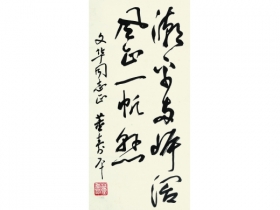 潮平两岸阔
风正一帆悬
文华同志正
董寿平